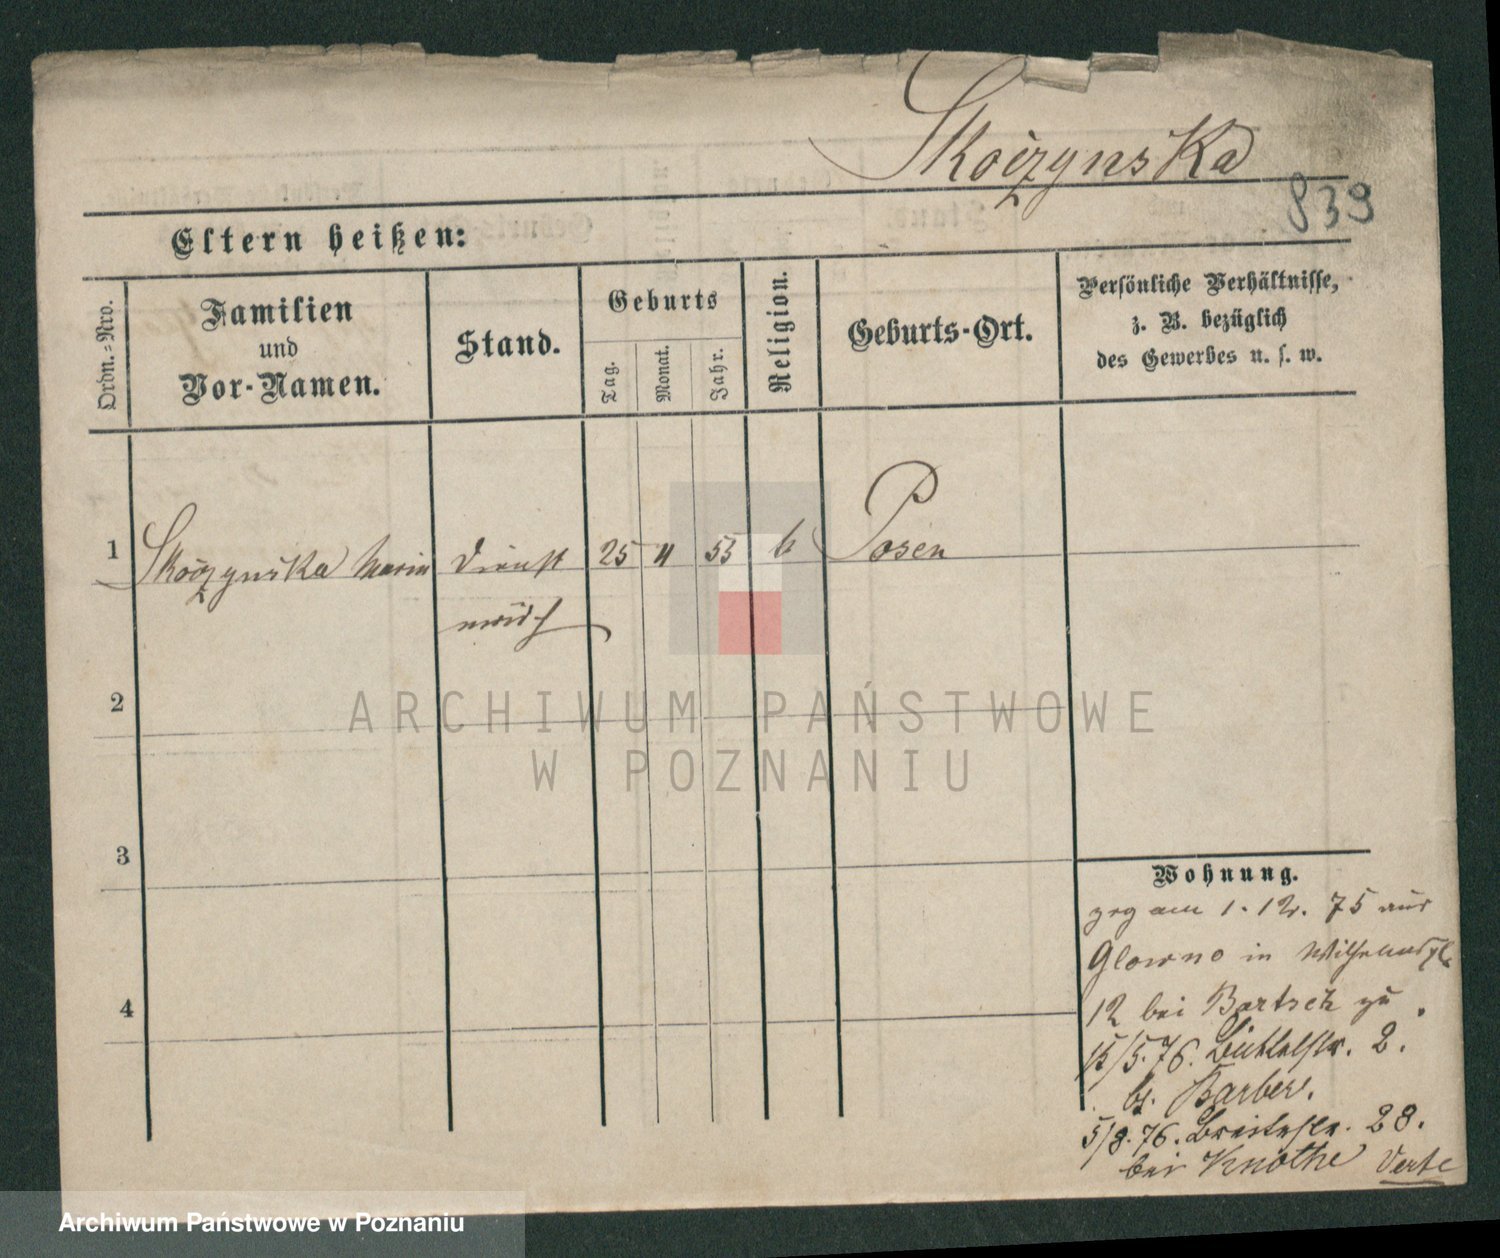 Skoczynska
839
Eltern heißen:
Ordn.-Nro.
Familien
und
Vor-Namen.
Stand.
Geburts
Tag.
Monat.
Jahr.
Religion.
Geburts-Ort.
Persönliche Verhältnisse,
z. B. bezüglich
des Gewerbes u. s. w.
1 Skoczynska Marie Dienst 25 4 55 k Posen
mädch
2
3
4
Wohnung.
zog am 1. 12. 75 aus
Glowno in Wilhelmspl
12 bei Bartsch zu.
15/5. 76. Büttelstr. 2.
bei Barber.
5/8. 76. Breitestr. 28.
bei Knothe Verte
ARCHIWUM PAŃSTWOWE
W POZNANIU
Archiwum Państwowe w Poznaniu